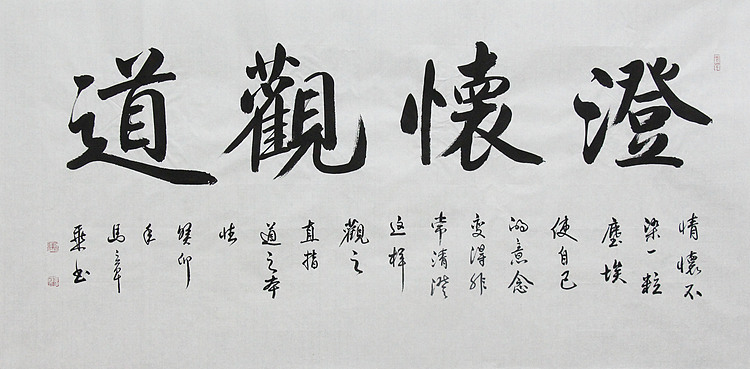 澄懷觀道
情懷不
染一粒
塵埃
使自己
的意念
變得非
常清澄
这样
觀之
直指
道之本
性
癸卯
年
馬章
乘书